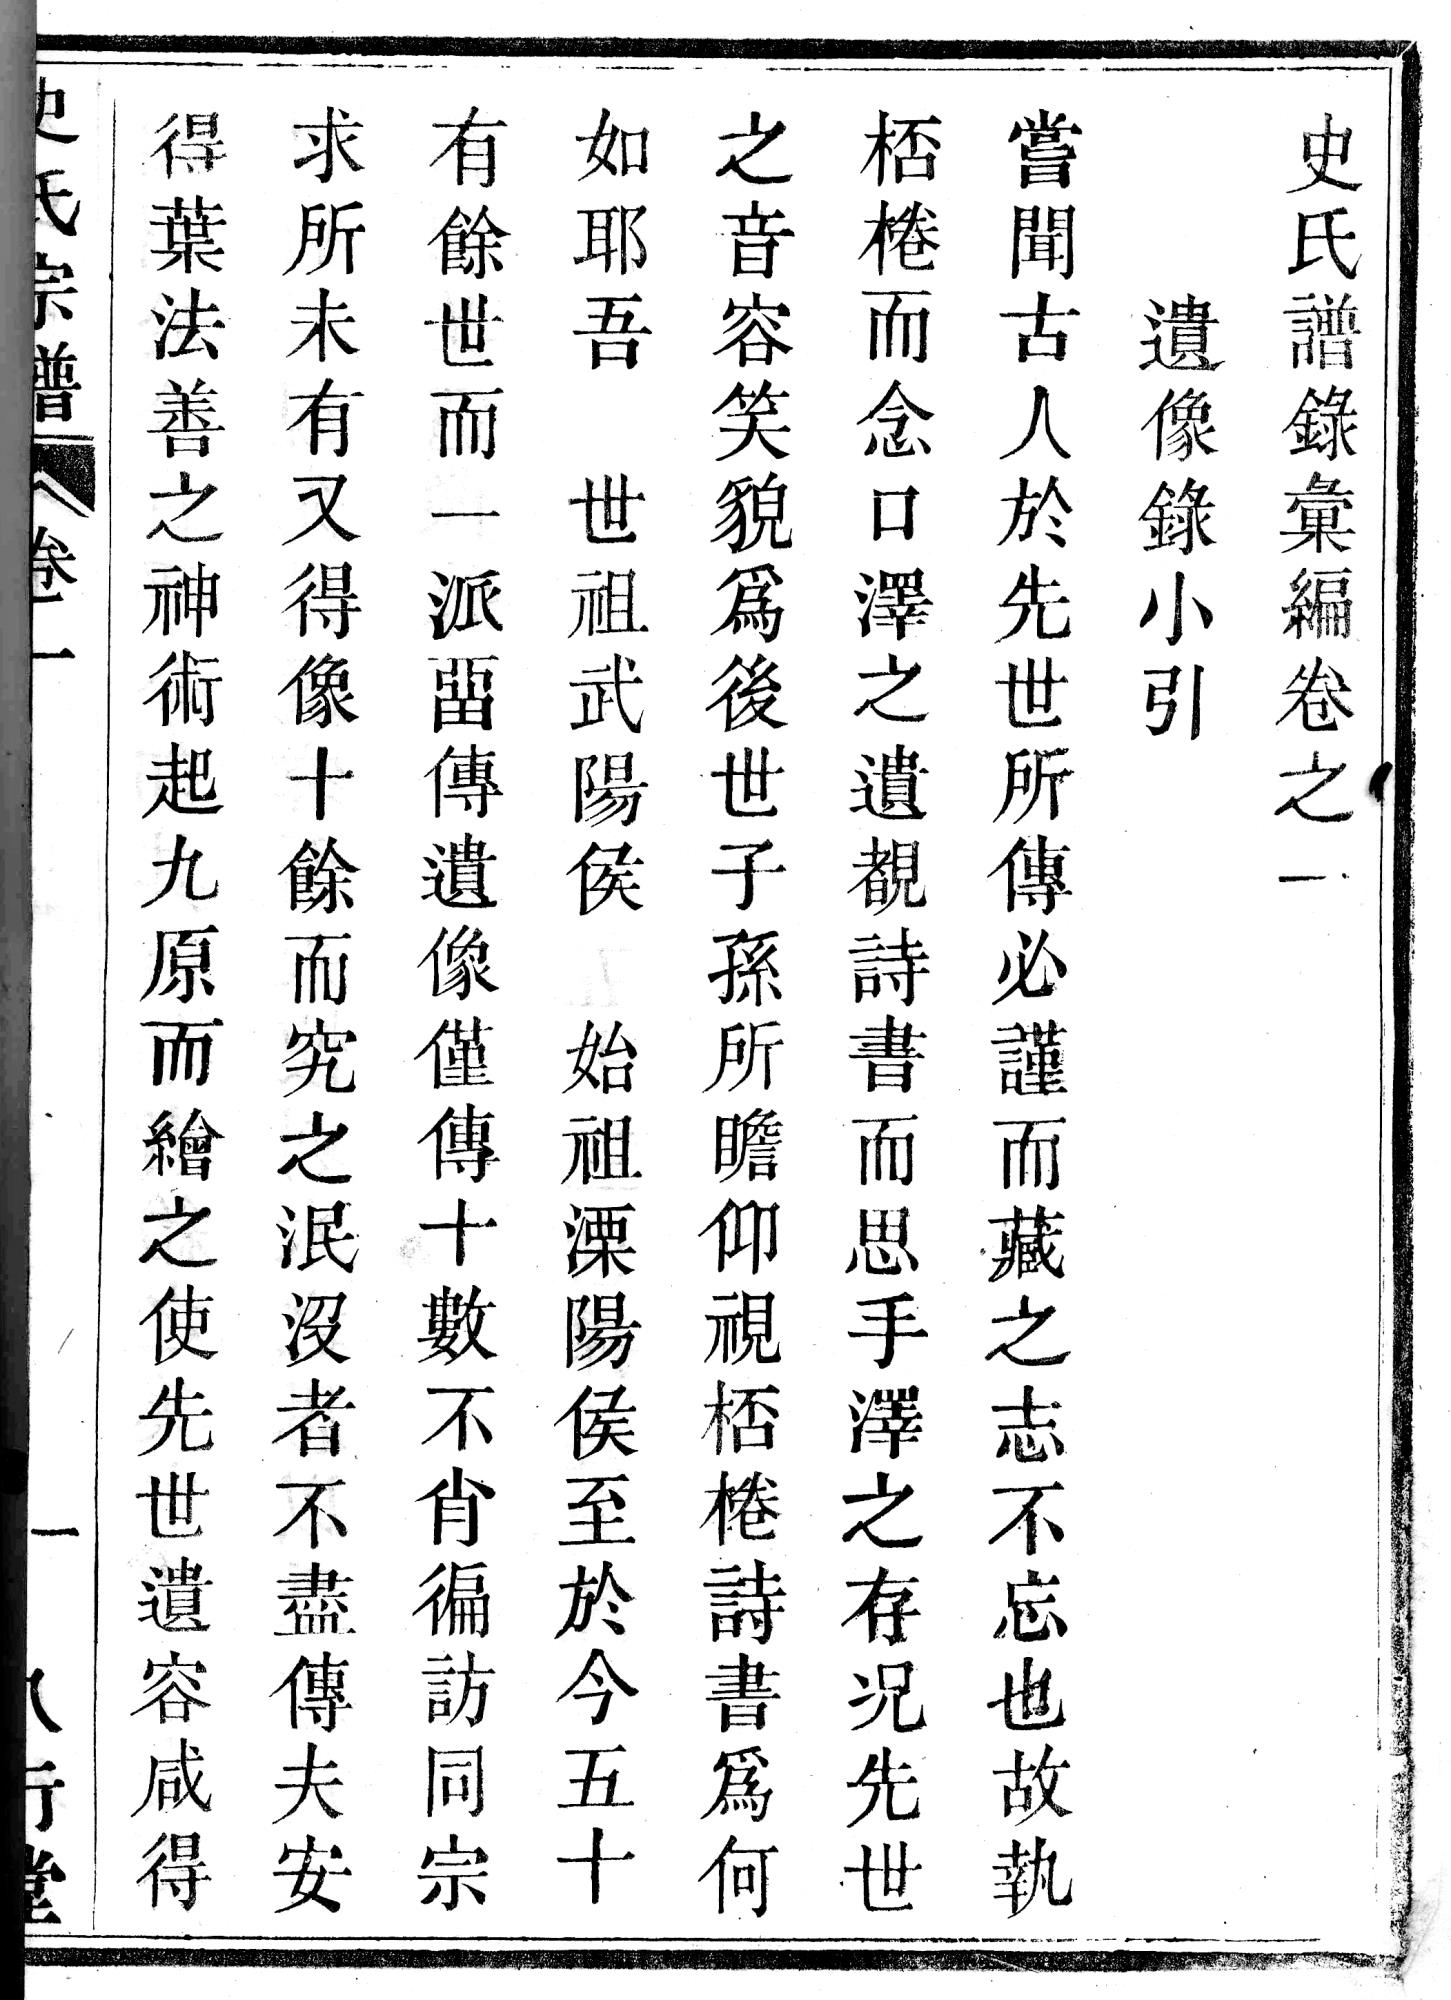 史氏譜錄彙編卷之一
遺像錄小引
嘗聞古人於先世所傳必謹而藏之志不忘也故執
桮棬而念口澤之遺覩詩書而思手澤之存况先世
之音容笑貌爲後世子孫所瞻仰視桮棬詩書爲何
如耶吾 世祖武陽侯 始祖溧陽侯至於今五十
有餘世而一派畱傳遺像僅傳十數不肖徧訪同宗
求所未有又得像十餘而究之泯沒者不盡傳夫安
得葉法善之神術起九原而繪之使先世遺容咸得
史氏宗譜 卷一 一 八行堂